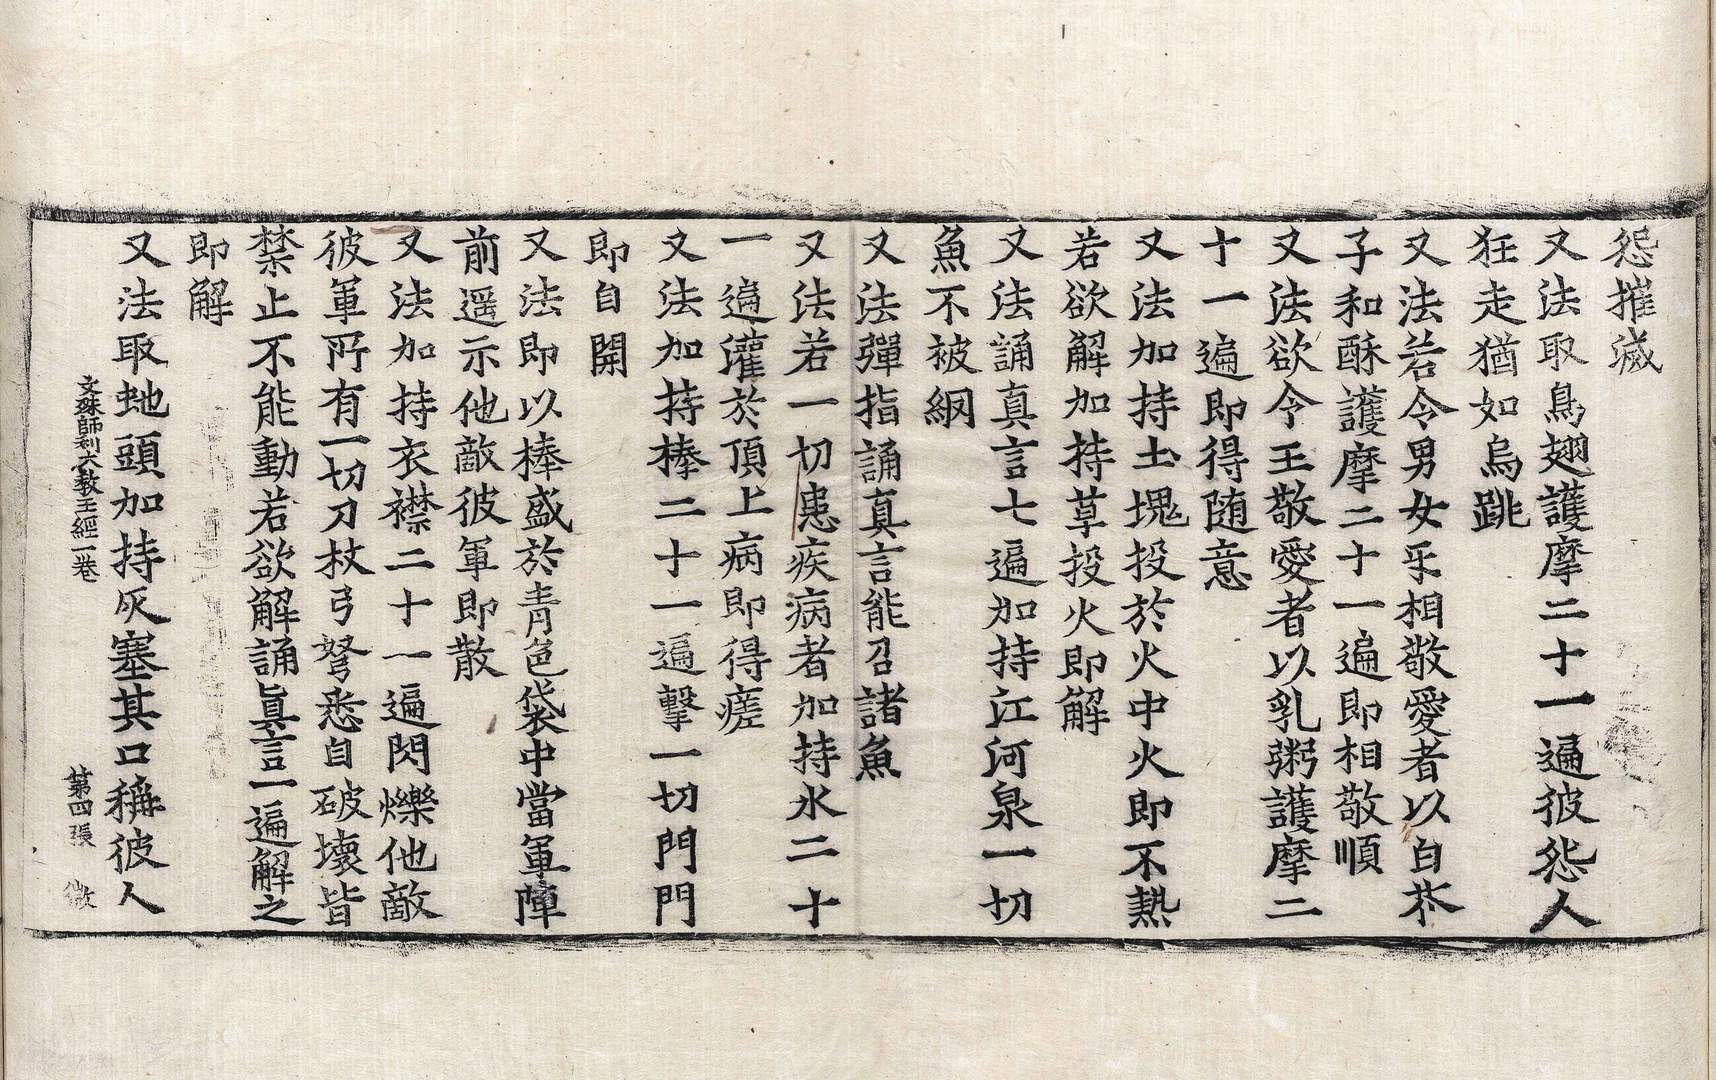 怨摧滅
又法取鳥翅護摩二十一遍彼怨人
狂走猶如烏跳
又法若令男女乐相敬愛者以白芥
子和酥護摩二十一遍即相敬順
又法欲令王敬愛者以乳粥護摩二
十一遍即得随意
又法加持土塊投於火中火即不熱
若欲解加持草投火即解
又法誦真言七遍加持江河泉一切
魚不被網
又法彈指誦真言能召諸魚
又法若一切患疾病者加持水二十
一遍灌於頂上病即得瘥
又法加持棒二十一遍擊一切門門
即自開
又法即以棒盛於青色袋中當軍陣
前遥示他敵彼軍即散
又法加持衣襟二十一遍閃爍他敵
彼軍所有一切刀杖弓弩悉自破壞皆
禁止不能動若欲解誦眞言一遍解之
即解
又法取虵頭加持灰塞其口稱彼人
文殊師利大教王經一卷 第四張 微